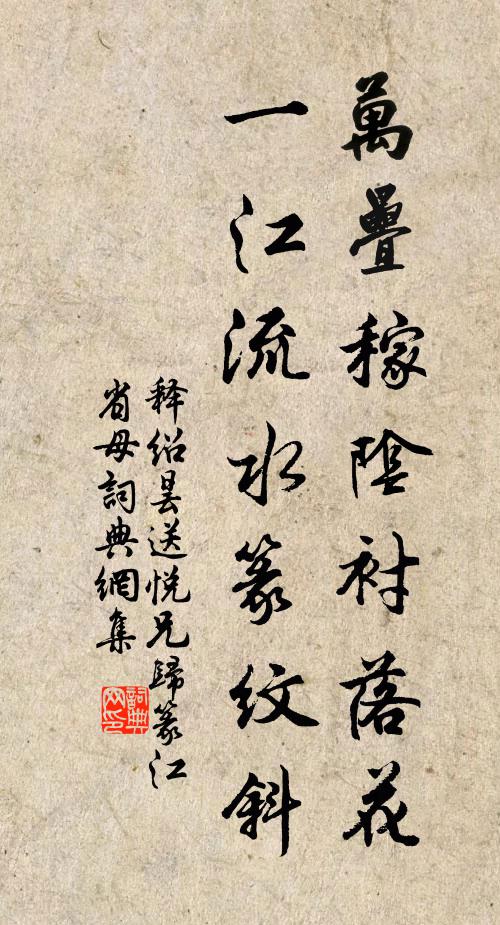 萬疊稼陰衬落花
一江流水篆紋斜
释绍昙送悦兄歸篆江
省母詞典網集
詞典
网印